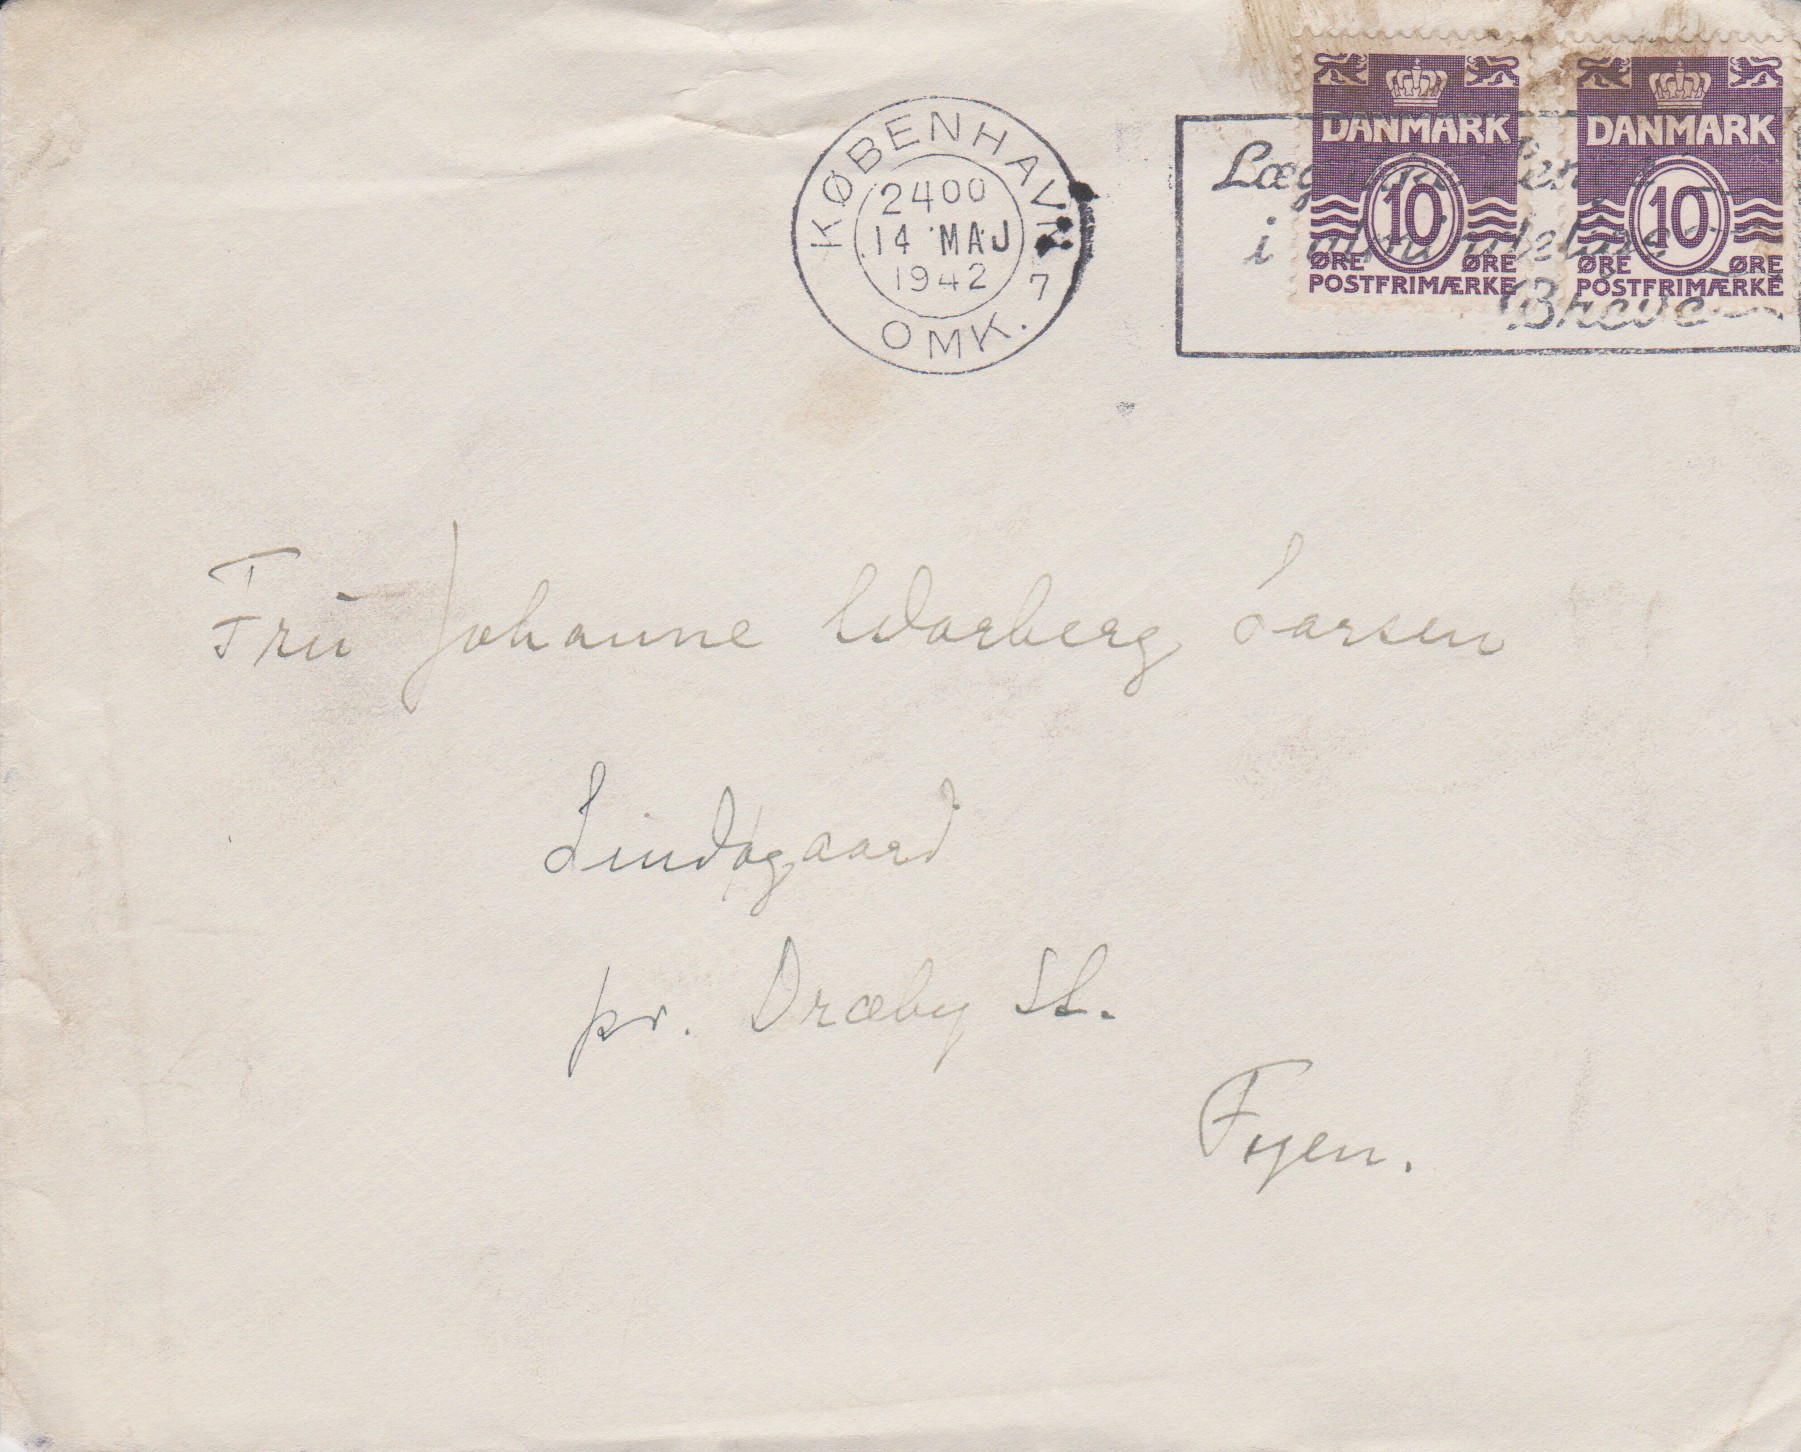 KØBENHAVN
2400
14 MAJ
1942
7
OMK.
DANMARK
10
ØRE ØRE
POSTFRIMÆRKE
DANMARK
10
ØRE ØRE
POSTFRIMÆRKE
Læg
i
Breve
Fru Johanne Warberg Larsen
Lindøgaard
pr. Dræby St.
Fyen.